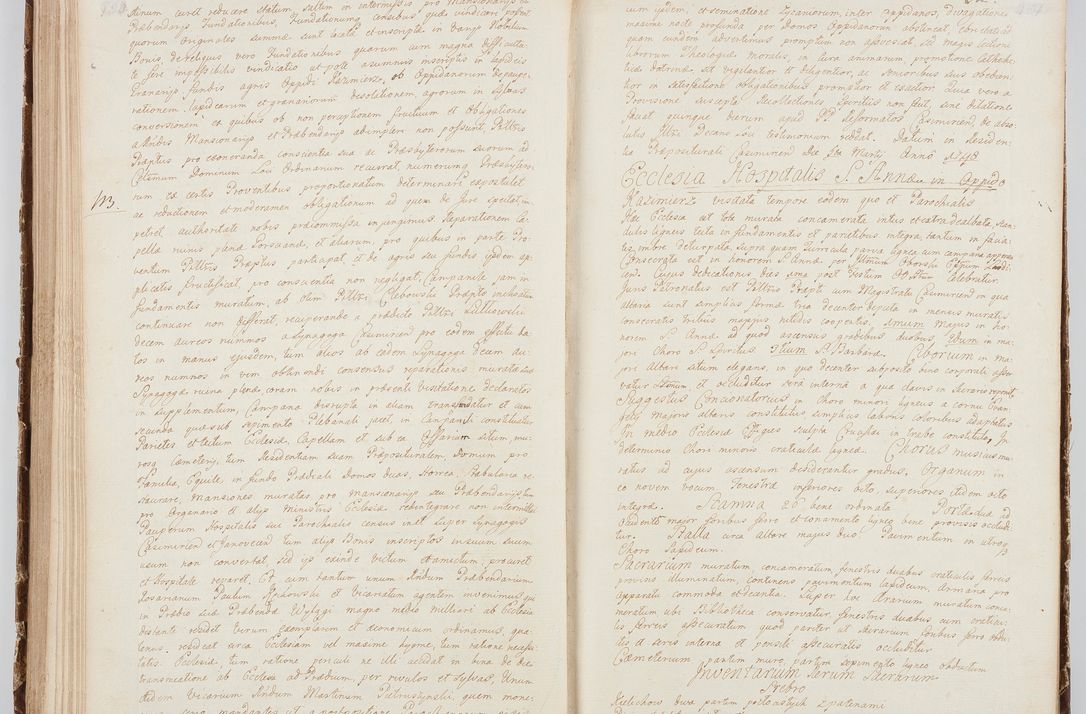 dinum curet reducere statum, saltem in intermissis pro Mansionarijs et
Præbendarijs Fundationibus, Fundationumq censibus quæ vindicari possunt
quorum originales summæ sunt locatæ et inscriptæ in varijs Nobilium
Bonis, de reliquis vero Fundationibus quarum cum magna difficulta
te
fundis agris Oppidi Kazimierz, ob Oppidanorum depaupe
rationem, lapidearum et granariorum desolationem, agrorum in sylvas
conversionem ex quibus ob non perceptionem fructuum et obligationes
a Rndis Mansionarijs et Præbendarijs adimpleri non possunt, Pttris
Præptus pro exoneranda conscientia sua ac Præsbyterorum suorum ad
Celsmum Dominum Loci Ordinarium recurrat, numerumq Præsbytero-
rum ex certis Proventibus proportionatum determinari expostulet
ac reductionem et moderamen obligationum ad quem de jure spectat im-
petret, authoritate nobis præmissa injungimus. Reparationem Ca-
pellæ ruinis plenæ Forswand, et aliarum, pro quibus in parte Pro-
ventum Pttris Præptus participat, et de agris seu fundis ijsdem ap-
plicatis fructificat, pro conscientia non negligat, Campanile jam in
fundamentis muratum, ab olim Pttri Chlebowski Præpto inchoatum
continuare non differat, recuperando a prædicto Pttri
decem aureos nummos a Synagoga Casimirien pro eodem effectu da-
tos in manus ejusdem, tum alios ab eadem Synagoga decem au-
reos nummos in vim obtinendi consensus reparationis muratæ suæ
Synagogæ ruina plenæ, coram nobis in præsenti visitatione declaratos
in supplementum, Campana disrupta in aliam transfundatur et cum
secunda quæ sub sepimento Plebanali jacet, in Campanili constituatur,
Parietes et tectum Ecclesiæ, Capellam et sub ea Ossarium situm, mu-
rosq Cæmeterij, tum Residentiam suam Præposituralem, Domum pro
Familia, Equile, in fundo Prædiali Domos duas, Horrea, Stabularia re-
staurare, mansiones muratas pro mansionarijs seu Præbendarijs tum
pro Organario et alijs Ministris Ecclesiæ redintegrare non intermittat
Pauperum Hospitalis sui Parochialis census in et super Synagogis
Casimirien et Janovecen tum alijs Bonis inscriptos in suum suum
usum non convertat, sed ijs exinde victum et amictum procuret
et Hospitale reparet. Et cum tantum unum Rndum Præbendarium
Rosarianum Paulum Rykowski et Vicariatum agentem invenimus, qui
in Prædio suæ Præbendæ Wylągi magno medio milliari ab Ecclesia
distante residet Verum exemplarem et œconomicum ordinamus, qua-
tenus resideat circa Ecclesiam vel maxime hyeme, tum ratione necessi-
tatis Ecclesiæ, tum ratione periculi ne illi accidat in bina de die
transmeatione ab Ecclesia ad Prædium, per rivulos et sylvas. Unum
itidem Vicarium Rndum Martinum Pietruszynski, quem mone-
113.
cum ijsdem, et seminatione zyzaniorum, inter oppidanos, divagatione
maxime nocte profunda per Domos Oppidanorum abstineat, ebrietati ad
quam eundem advertimus promptum non assvescat, sed magis lectioni
librorum Theologiæ moralis, in cura animarum, promotione cathechi-
ticæ doctrinæ, sit vigilantior et diligentior, ac senioribus suis obedien-
tior in satisfactione obligationibus promptior et exactior. Quia vero a
Provisione suscepta Recollectiones Spiritus non fecit, sine dilatione
faciat quinque dierum apud PP. Reformatos Casimirien, de abso-
lutis Illtri Decano suo testimonium reddat. Datum in Residen-
tia Præpositurali Casimirien Die 5ta Martij Anno 1748.
Ecclesia Hospitalis S. Annæ in Oppido
Kazimierz visitata tempore eodem quo et Parochialis
Hæc Ecclesia est tota murata concamerata intus et extra dealbata, scan-
dulis ligneis tecta in fundamentis et parietibus integra, tantum in facia-
ta imbre deturpata, supra quam Turricula parva lignea cum campana apparet
Consecrata est in honorem S. Annæ per Illmum Oborski Offnum Laodi-
cen. Cujus dedicationis dies una post Festum celebratur.
Juris Patronatus est Pttris Præpti cum Magistratu Casimirien in qua
altaria sunt simplicis formæ tria decenter depicta in mensis muratis
consecratis tribus mappis nitidis coopertis. 1mum Majus in ho-
norem S. Annæ ad quod ascensus gradibus duobus, 2dum in ma-
jori Choro S. Spiritus. 3tium S. Barbaræ. Ciborium in ma-
jori altari situm elegans, in quo decenter supposito bino corporali asser
vatur SSmum, et occluditur serâ internâ a qua clavis in ærario reponit,
Suggestus Concionatorius in Choro minori ligneus a cornu Evan-
gelij majoris altaris constitutus, simplicis laboris coloribus adaptatus
In medio Ecclesiæ Effigies sculpta Crucifixi in trabe constituta, In
determinio Chori minoris craticula lignea. Chorus musicus mu-
ratus ad cujus ascensum desiderantur gradus, Organum in
eo novem vocum. Fenestræ inferiores octo, superiores itidem octo
integræ. Ramna 20 bene ordinata Portæ duæ ad
Occidentem major foribus ferro et conamento ligneo bene provisis occludi-
tur. Stalla circa altare majus duo. Pavimentum in utroq
Choro lapideum.
Sacrarium muratum, concameratum, fenestris duabus craticulis ferreis
provisis illuminatum, continens pavimentum lapideum, armaria pro
apparatu commoda et decentia. Super hoc Ærarium muratum conca-
meratum ubi Bibliotheca conservatur, fenestris duabus cum craticu-
lis ferreis assecuratum quod pariter ut Ærarium foribus ferro obduc-
tis et seris interna et pensili assecuratis occluditur
Cœmeterium partim muro, partim sepimento ligneo obductum
Inventarium Rerum Sacrarum
Srebro
Kielichow dwa partim pozłocistych z patenami